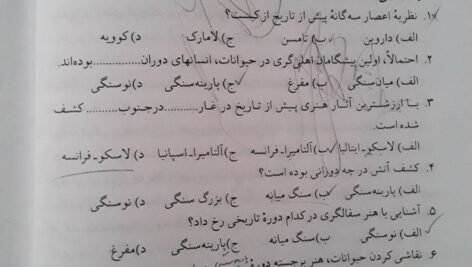 ۱. نظریهٔ اعصار سه‌گانهٔ پیش از تاریخ از کیست؟
الف) داروین ب) تامسن ج) لامارک د) کوویه
۲. احتمالاً، اولین پیشگامان اهلی‌گری در حیوانات، انسانهای دوران...............بوده‌اند.
الف) میان‌سنگی ب) مفرغ ج) پارینه‌سنگی د) نوسنگی
۳. با ارزشترین آثار هنری پیش از تاریخ در غار..........درجنوب..........کشف
شده است.
الف) لاسکو ـ ایتالیا ب) آلتامیرا ـ فرانسه ج) آلتامیرا ـ اسپانیا د) لاسکو ـ فرانسه
۴. کشف آتش در چه دورانی بوده است؟
الف) پارینه‌سنگی ب) سنگ میانه ج) بزرگ سنگی د) نوسنگی
۵. آشنایی با هنر سفالگری در کدام دورهٔ تاریخی رخ داد؟
الف) نوسنگی ب) سنگ میانه ج) پارینه‌سنگی د) مفرغ
۶. نقاشی کردن حیوانات، هنر برجسته دورهٔ